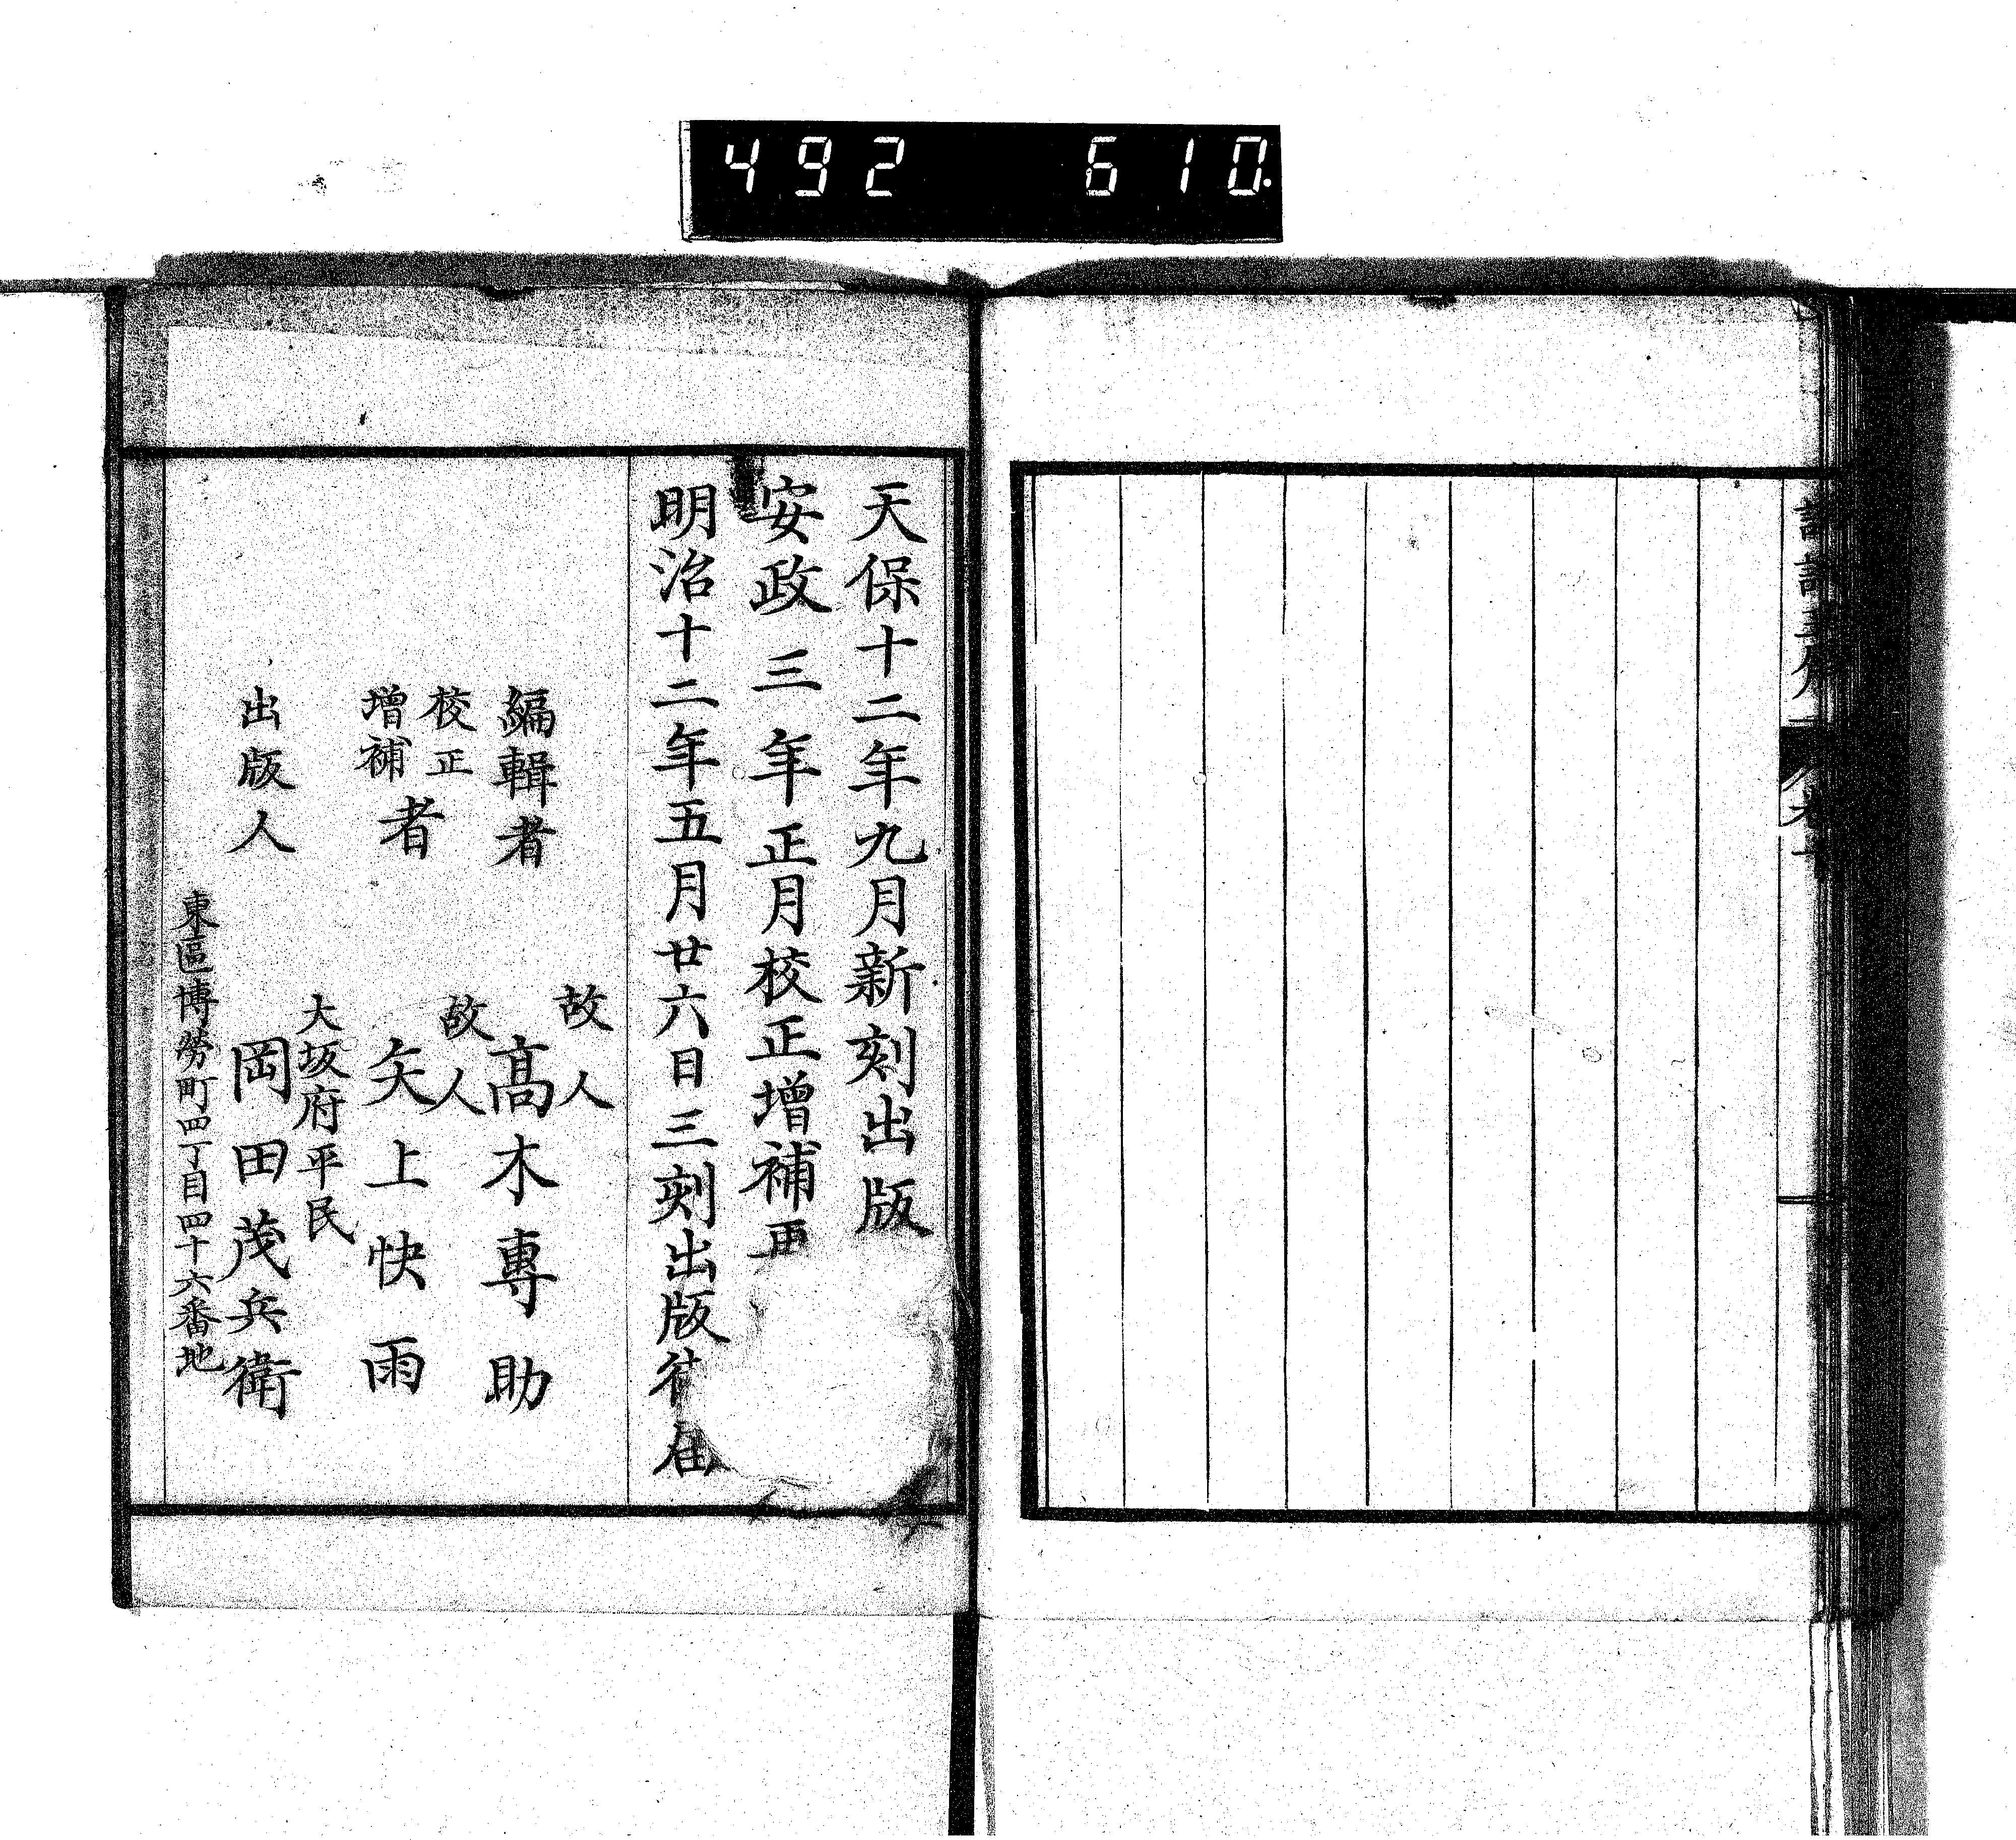 492 610.
天保十二年九月新刻出版
安政三年正月校正增補再
明治十二年五月廿六日三刻出版
編輯者 故人 髙木專助
校正增補者 故人 矢上快雨
出版人 大坂府平民 岡田茂兵衛
東區博勞町四丁目四十六番地